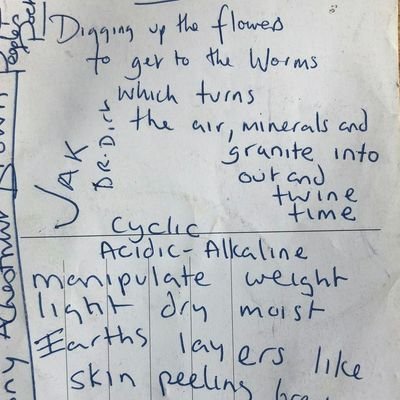 Digging up the flowers
to get to the Worms
which turns
the air, minerals and
granite into
out and
twine
time
JAK
Cyclic
Acidic-Alkaline
manipulate weight
light dry moist
Earths layers like
skin peeling
Peoples